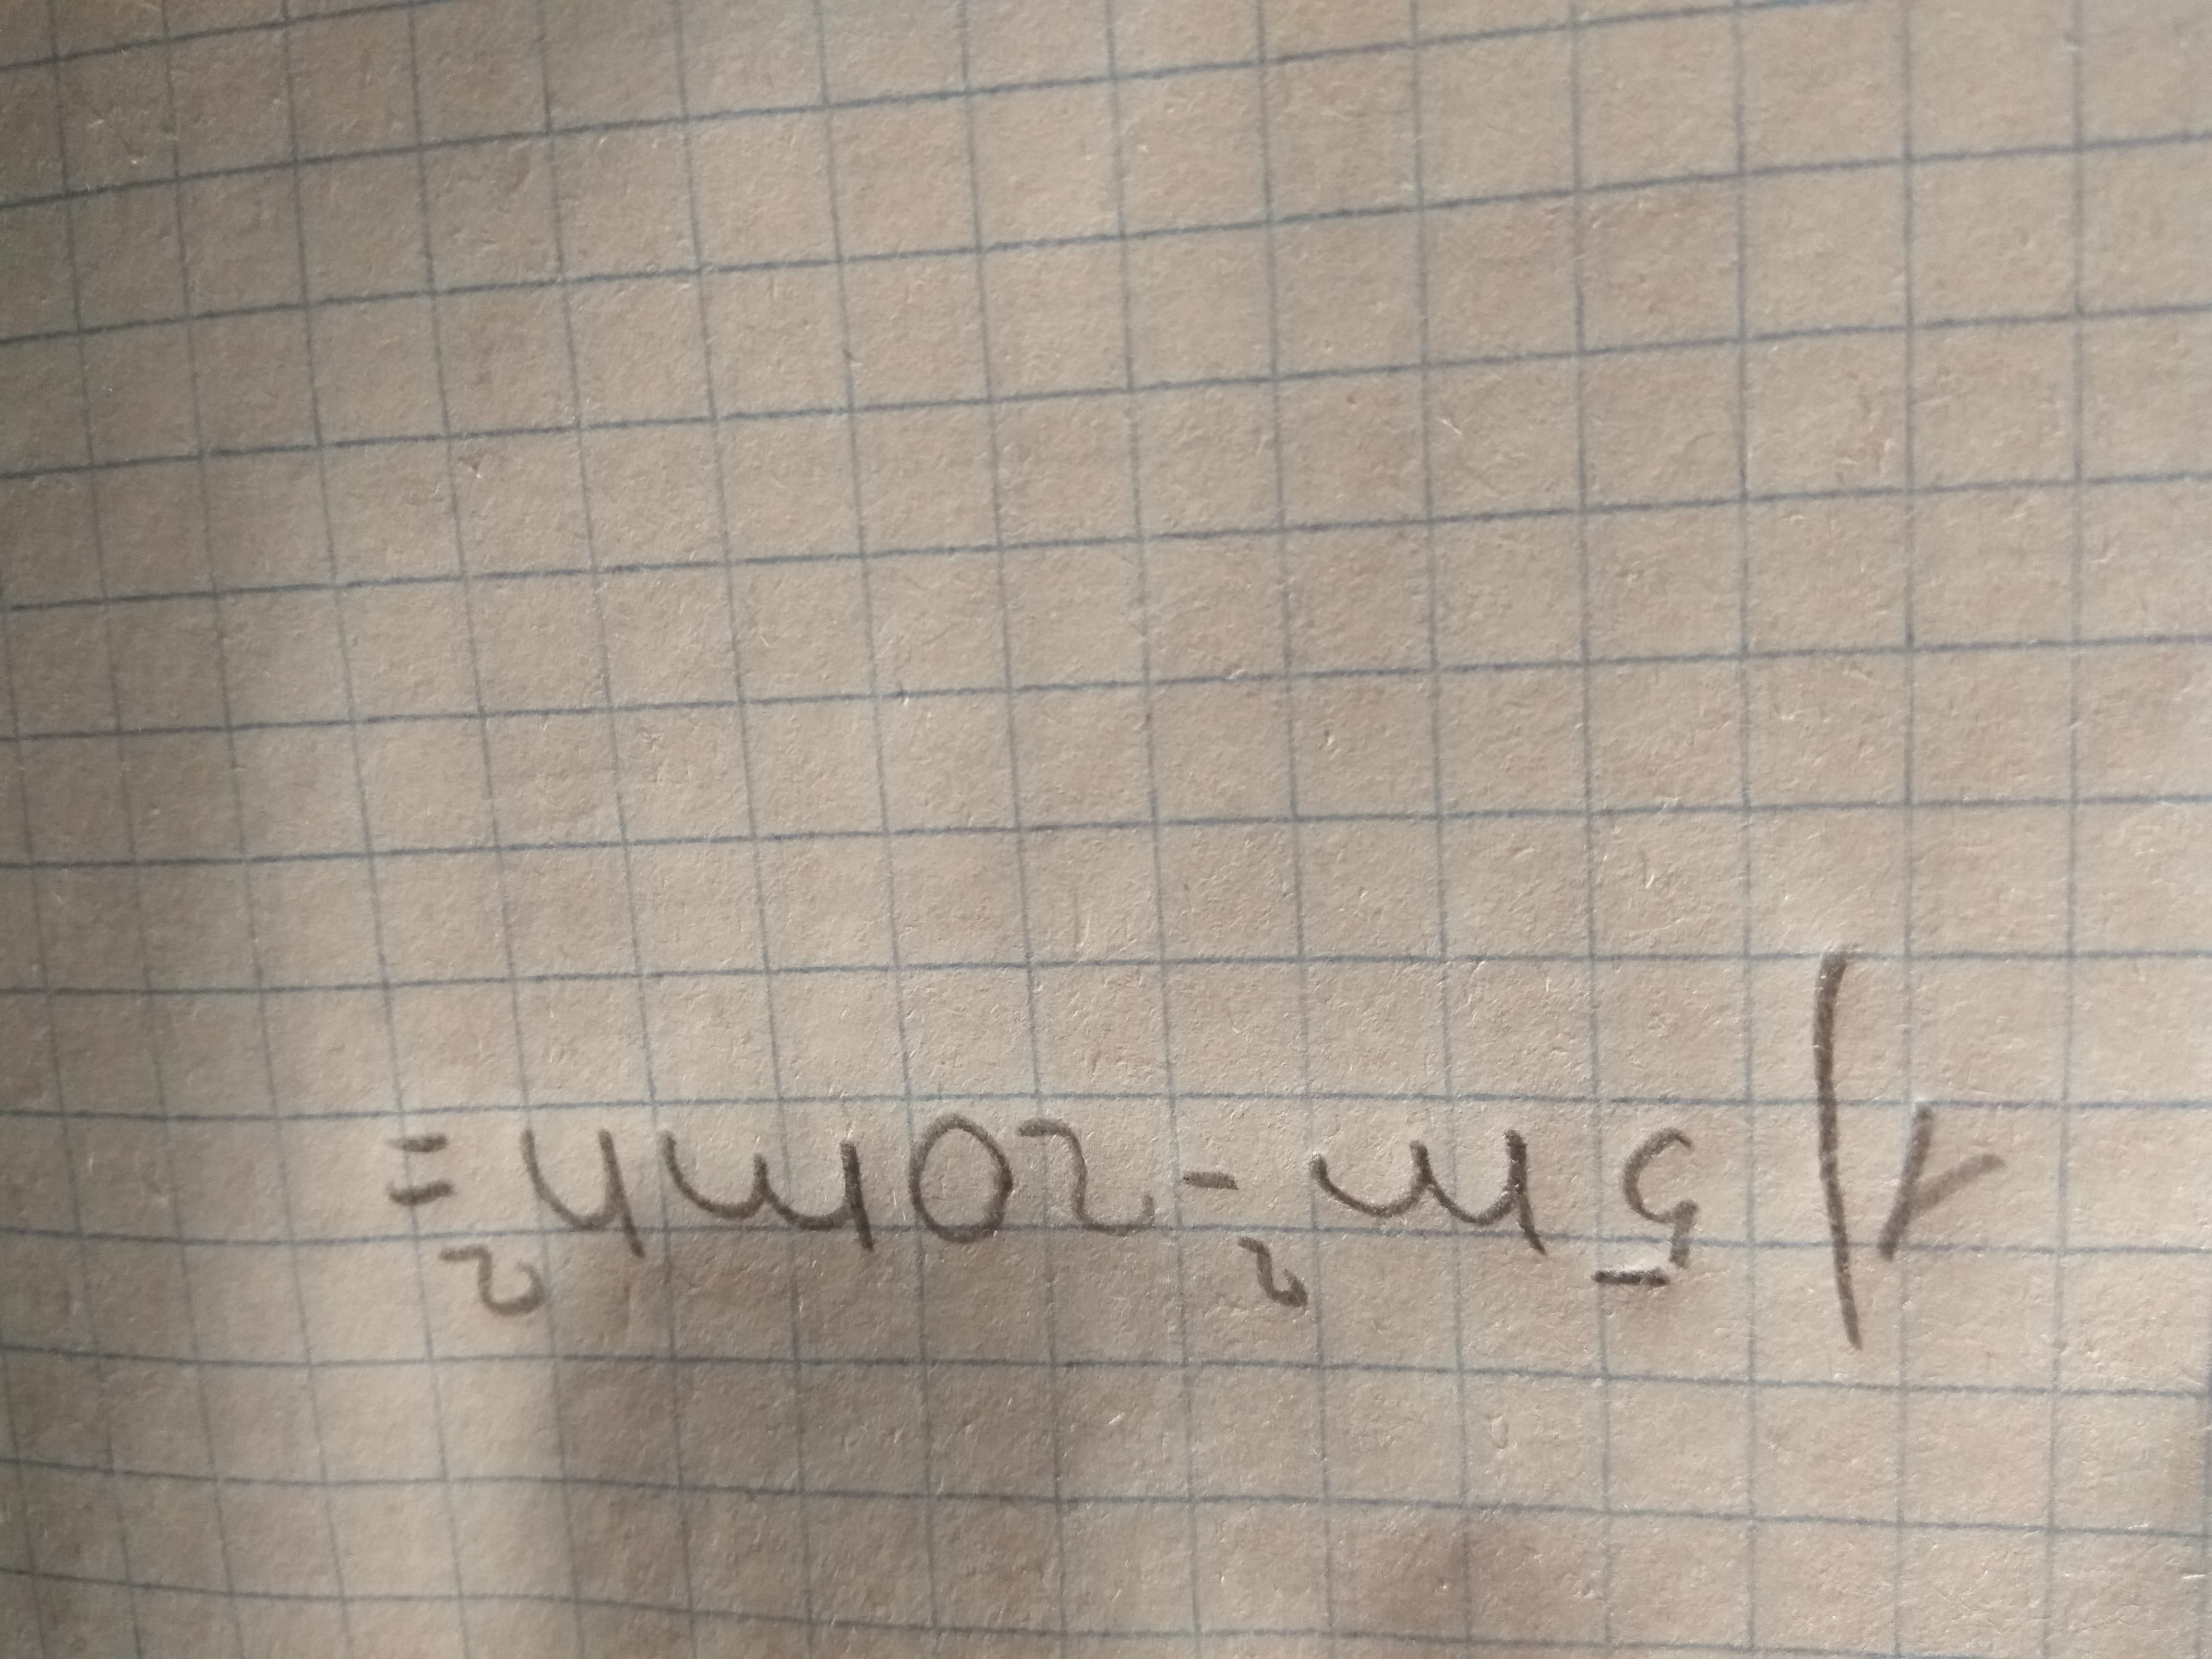 1) 5m² - 20mn² =